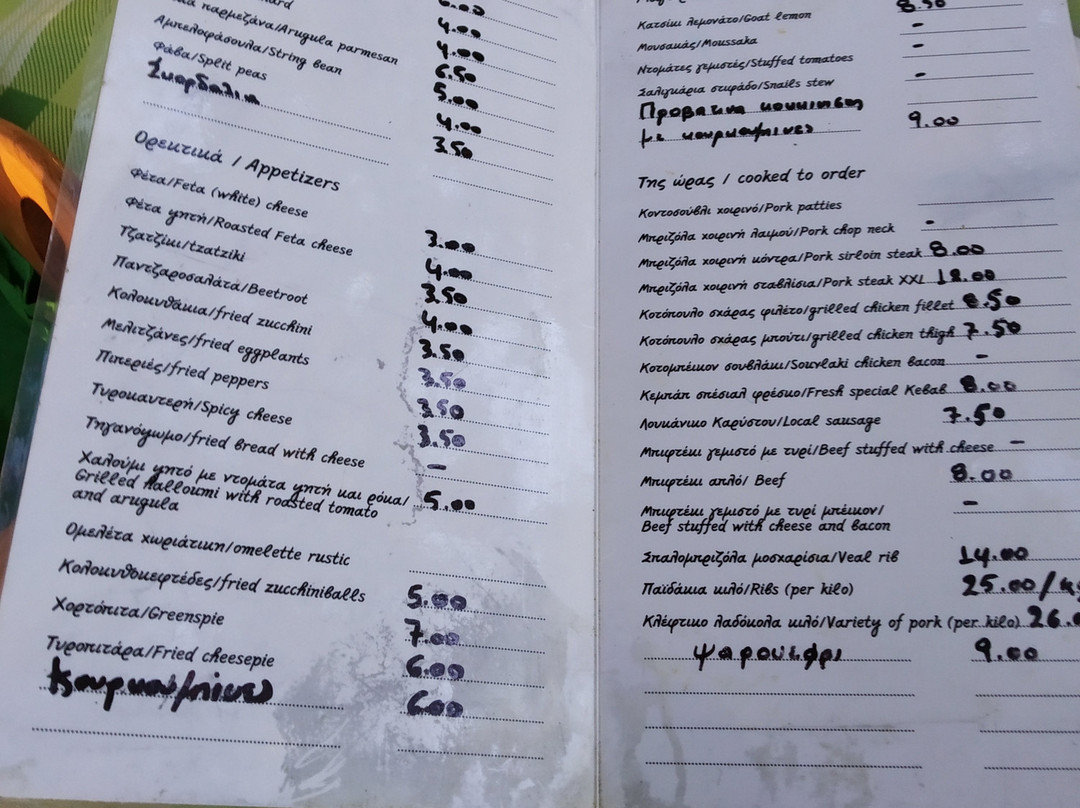 6.00
παρμεζάνα/Arugula parmesan 4.00
Αμπελοφάσουλα/String bean 4.00
Φάβα/Split peas 6.50
Σκορδαλια 5.00
4.00
3.50
Ορεκτικά / Appetizers
Φέτα/Feta (white) cheese
Φέτα ψητή/Roasted Feta cheese 3.00
Τζατζίκι/tzatziki 4.00
Παντζαροσαλάτα/Beetroot 3.50
Κολοκυθάκια/fried zucchini 4.00
Μελιτζάνες/fried eggplants 3.50
Πιπεριές/fried peppers 3.50
Τυροκαυτερή/Spicy cheese 3.50
Τηγανόψωμο/fried bread with cheese 3.50
Χαλούμι ψητό με ντομάτα ψητή και ρόκα/ -
Grilled halloumi with roasted tomato 5.00
and arugula
Ομελέτα χωριάτικη/omelette rustic
Κολοκυθοκεφτέδες/fried zucchiniballs 5.00
Χορτόπιτα/Greenspie 7.00
Τυροπιτάρα/Fried cheesepie 6.00
κουρκουμπινες 6.00
8.50
Κατσίκι λεμονάτο/Goat lemon -
Μουσακάς/Moussaka -
Ντομάτες γεμιστές/Stuffed tomatoes
Σαλιγκάρια στιφάδο/Snails stew -
Προβατινα κοκκινιστη
με κουρκουμπινες 9.00
Της ώρας / cooked to order
Κοντοσούβλι χοιρινό/Pork patties
Μπριζόλα χοιρινή λαιμού/Pork chop neck -
Μπριζόλα χοιρινή κόντρα/Pork sirloin steak 8.00
Μπριζόλα χοιρινή σταβλίσια/Pork steak XXL 12.00
Κοτόπουλο σχάρας φιλέτο/grilled chicken fillet 8.50
Κοτόπουλο σχάρας μπούτι/grilled chicken thigh 7.50
Κοτομπέικον σουβλάκι/Souvlaki chicken bacon -
Κεμπάπ σπέσιαλ φρέσκο/Fresh special Kebab 8.00
Λουκάνικο Καρύστου/Local sausage 7.50
Μπιφτέκι γεμιστό με τυρί/Beef stuffed with cheese -
Μπιφτέκι απλό/ Beef 8.00
Μπιφτέκι γεμιστό με τυρί μπέικον/ -
Beef stuffed with cheese and bacon
Σπαλομπριζόλα μοσχαρίσια/Veal rib 14.00
Παϊδάκια κιλό/Ribs (per kilo) 25.00/
Κλέφτικο λαδόκολα κιλό/Variety of pork (per kilo) 26.
ψαρονεφρι 9.00